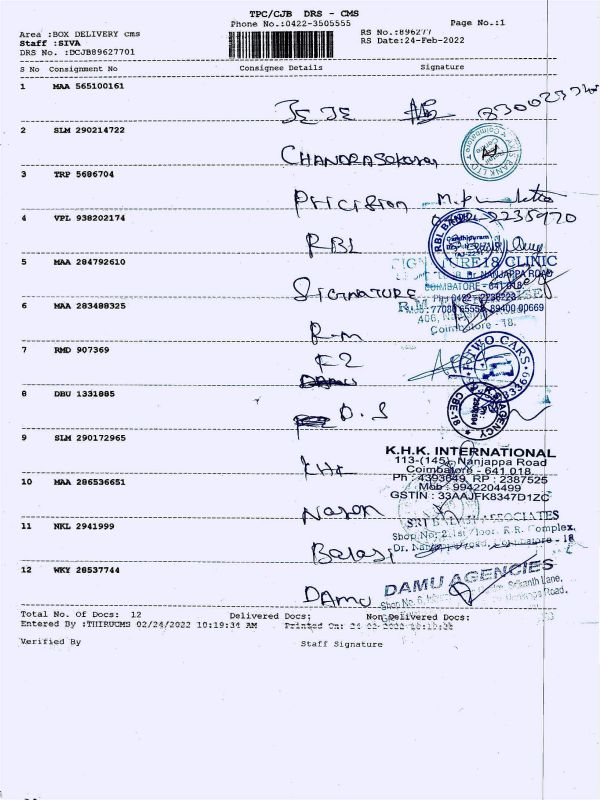 TPC/CJB DRS - CMS
Phone No.:0422-3505555
Page No.:1
Area :BOX DELIVERY cms
RS No.:896277
Staff :SIVA
RS Date:24-Feb-2022
DRS No. :DCJB89627701
S No Consignment No Consignee Details Signature
1 MAA 565100161
JEJE
2 SLM 290214722
CHANDRASekaran
3 TRP 5686704
Pricision
4 VPL 938202174
2235970
RBL BANK
RBL
5 MAA 284792610
SIGNATURE18 CLINIC
NANJAPPA ROAD
COIMBATORE - 641 018
SIGNATURE
6 MAA 283488325
Coimbatore - 18.
R-M
7 RMD 907369
F2
F TWO CARS
8 DBU 1331885
D.S
R.S AGENCY
CBE-18
9 SLM 290172965
K.H.K. INTERNATIONAL
113-(145), Nanjappa Road
Coimbatore - 641 018.
KHK
Ph : 4393649, RP : 2387525
Mob : 9942204499
GSTIN : 33AAJFK8347D1ZC
10 MAA 286536651
Nason
11 NKL 2941999
SRI BALAJI ASSOCIATES
R.R. Complex,
Balaji
12 WKY 28537744
DAMU AGENCIES
Srikanth Lane,
DAMU
Total No. Of Docs: 12 Delivered Docs: Non Delivered Docs:
Entered By :THIRUCMS 02/24/2022 10:19:34 AM Printed On: 24-02-2022
Verified By Staff Signature